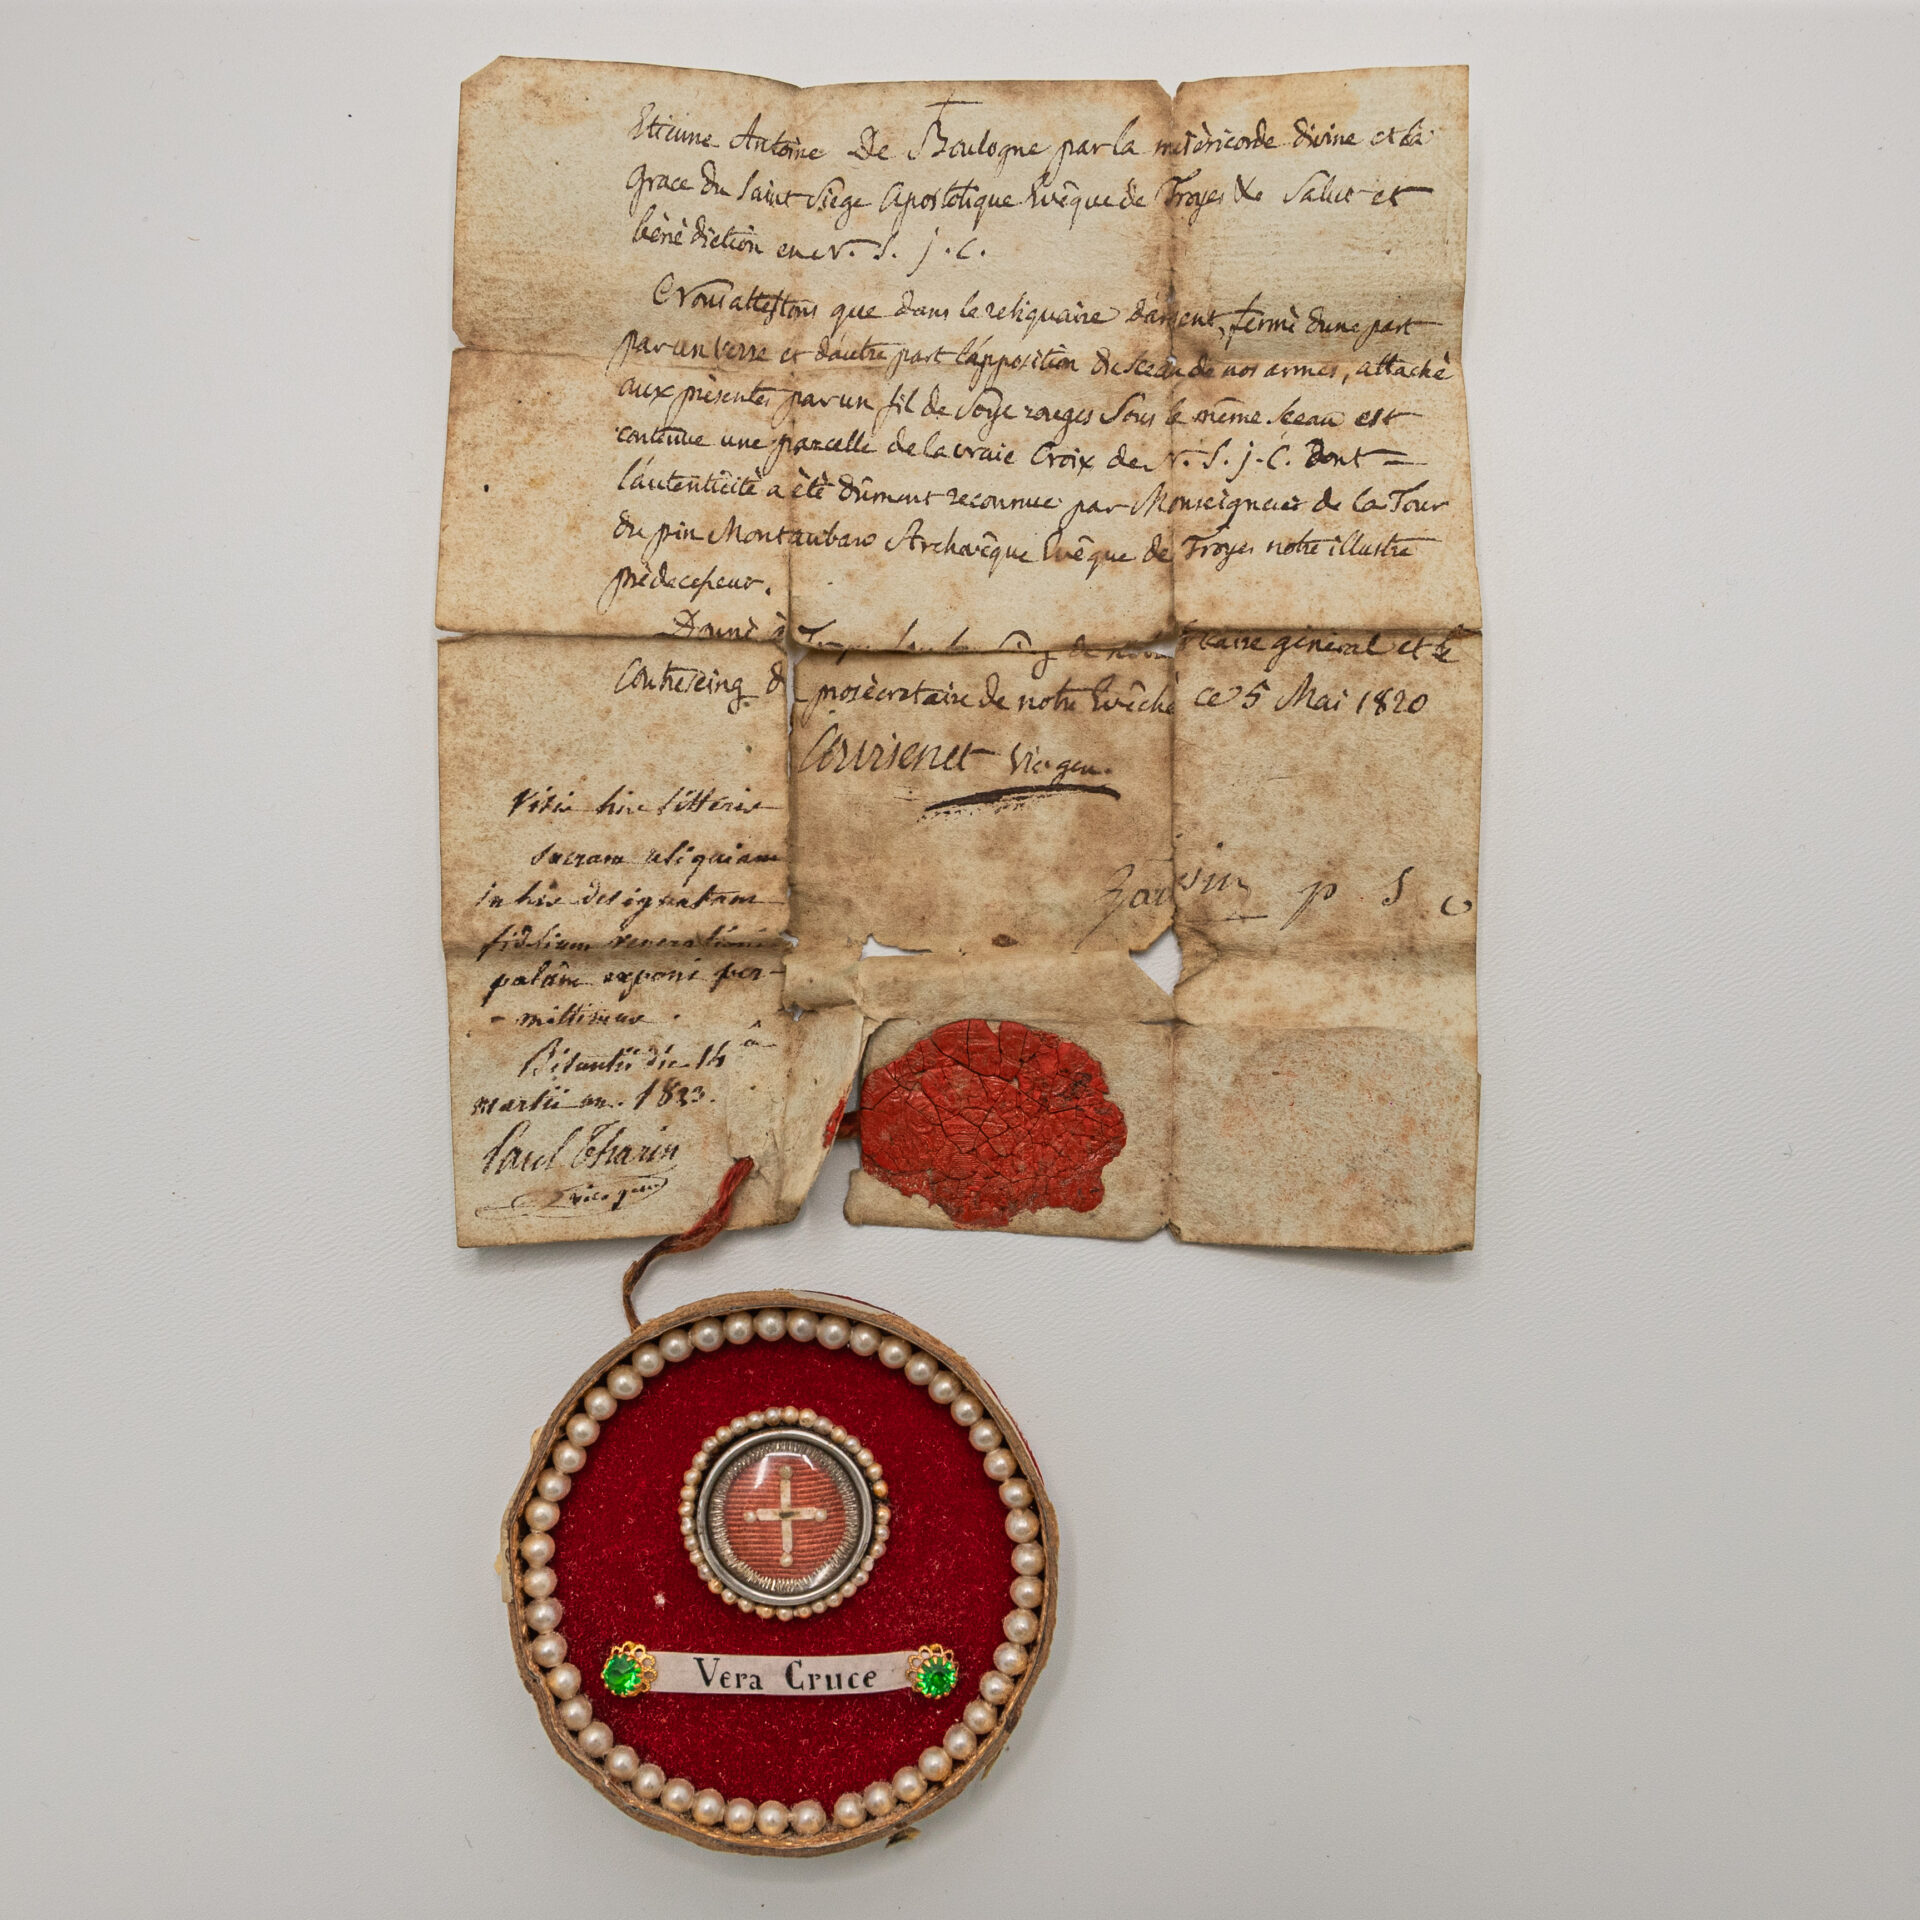 Etienne Antoine De Boulogne par la misèricorde divine et la
Grace du Saint Siege Apostolique Evêque de Troyes &c Salut et
bènèdiction en N. S. j. C.
attestons que dans le reliquaire d'argent, fermè dune part
par un verre et d'autre part l'apposition du sceau de nos armes, attachè
aux prèsentes par un fil de Soye rouges Sous le même sceau est
contenue une parcelle de la vraie Croix de N. S. j. C. Dont =
l'autenticitè a ètè dûment reconnue par Monseigneur de la Tour
du pin Montauban Archevêque Evêque de Troyes notre illustre
prèdecesseur.
Donnè à Troyes de notre Vicaire gènèral et le
Contreseing d prosècretaire de notre Evêchè ce 5 Mai 1820
Vic. gen.
p S
Visis hisce litteris
sacram reliquiam
in his designatam
fidelium venerationi
palàm exponi per-
- mittimus.
Bisuntii die 14â
martii an. 1823.
Paul Tharin
vic. gen.
Vera Cruce